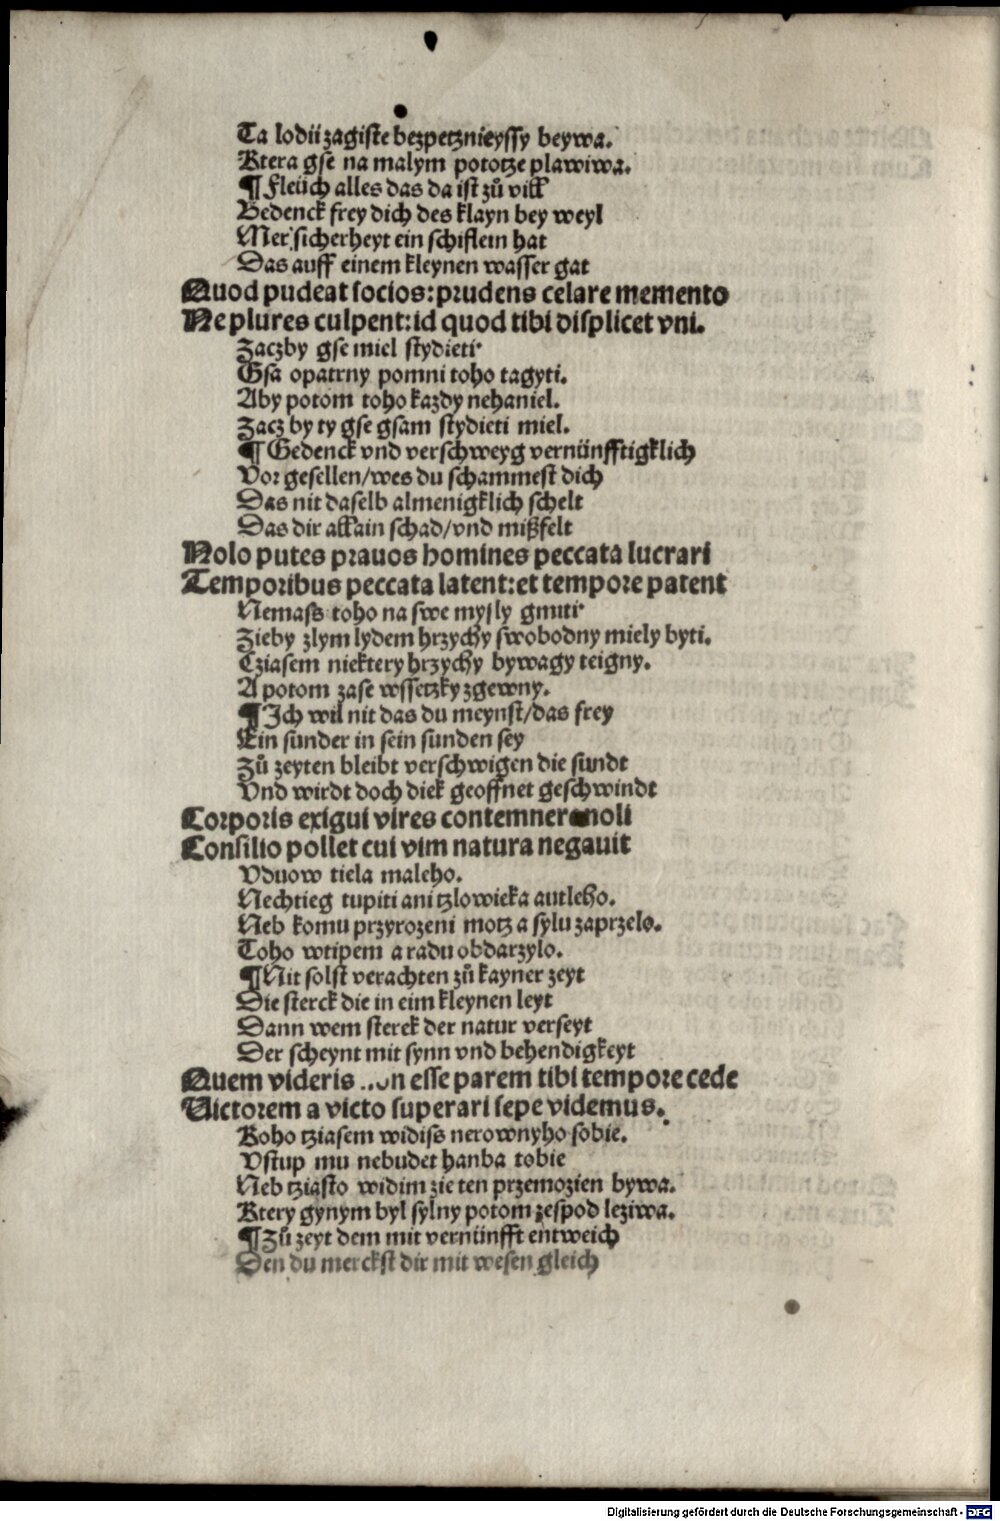 Ta lodii zagiste bezpetznieyssy beywa.
Ktera gse na malym pototze plawiwa.
¶ Fleüch alles das da ist zů vill
Bedenck frey dich des klayn bey weyl
Mer sicherheyt ein schiflein hat
Das auff einem kleynen wasser gat
Quod pudeat socios: prudens celare memento
Ne plures culpent: id quod tibi displicet vni.
Zaczby gse miel stydieti
Gsa opatrny pomni toho tagyti.
Aby potom toho kazdy nehaniel.
Zacz by ty gse gsam stydieti miel.
¶ Gedenck vnd verschweyg vernünfftigklich
Vor gesellen/wes du schammest dich
Das nit daselb almenigklich schelt
Das dir allain schad/vnd mißfelt
Nolo putes prauos homines peccata lucrari
Temporibus peccata latent: et tempore patent
Nemass toho na swe mysly gmiti
Zieby zlym lydem hrzychy swobodny miely byti.
Cziasem niektery hrzychy bywagy teigny.
A potom zase wssetzky zgewny.
¶ Ich wil nit das du meynst/das frey
Ein sunder in sein sunden sey
Zů zeyten bleibt verschwigen die sundt
Vnd wirdt doch diek geoffnet geschwindt
Corporis exigui vires contemnere noli
Consilio pollet cui vim natura negauit
Vduow tiela maleho.
Nechtieg tupiti ani tzlowieka autleho.
Neb komu przyrozeni motz a sylu zaprzelo.
Toho wtipem a radu obdarzylo.
¶ Nit solst verachten zů kayner zeyt
Die sterck die in eim kleynen leyt
Dann wem sterck der natur verseyt
Der scheynt mit synn vnd behendigkeyt
Quem videris ..on esse parem tibi tempore cede
Victorem a victo superari sepe videmus.
Koho tziasem widiss nerownyho sobie.
Vstup mu nebudet hanba tobie
Neb tziasto widim zie ten przemozien bywa.
Ktery gynym byl sylny potom zespod leziwa.
¶ Zů zeyt dem mit vernünfft entweich
Den du merckst dir mit wesen gleich
Digitalisierung gefördert durch die Deutsche Forschungsgemeinschaft - DFG